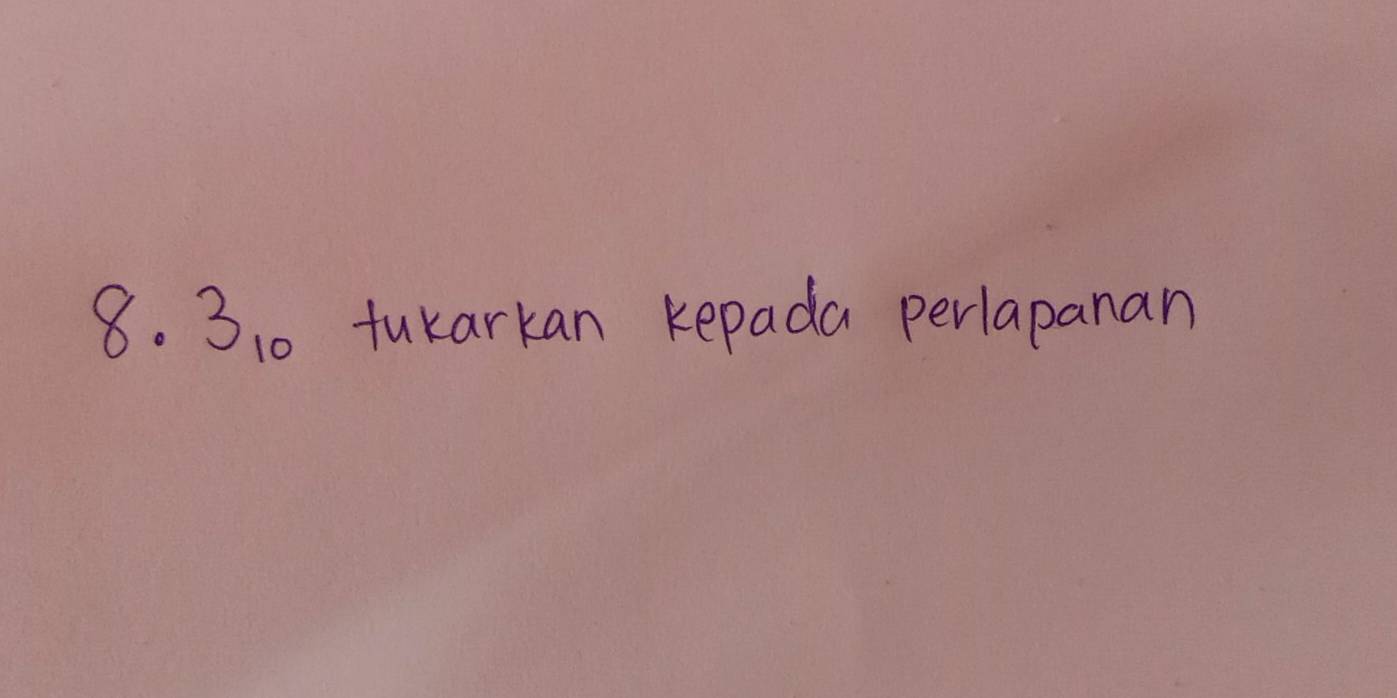 8.3₁₀ tukarkan kepada perlapanan